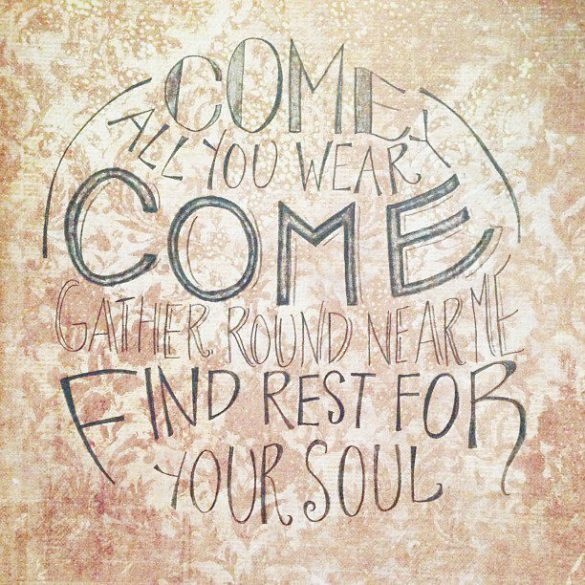 COME
ALL YOU WEARY
COME
GATHER ROUND NEAR ME
FIND REST FOR
YOUR SOUL